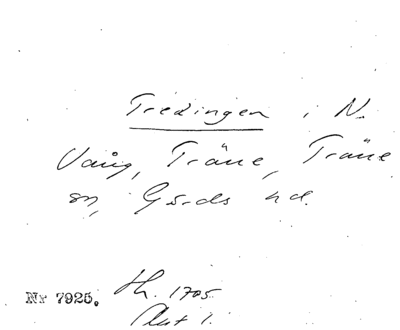 Tredingen i N.
Vång, Träne, Träne
sn, Gärds hd.
Nr 7925. Sk. 1705
Akt 1.